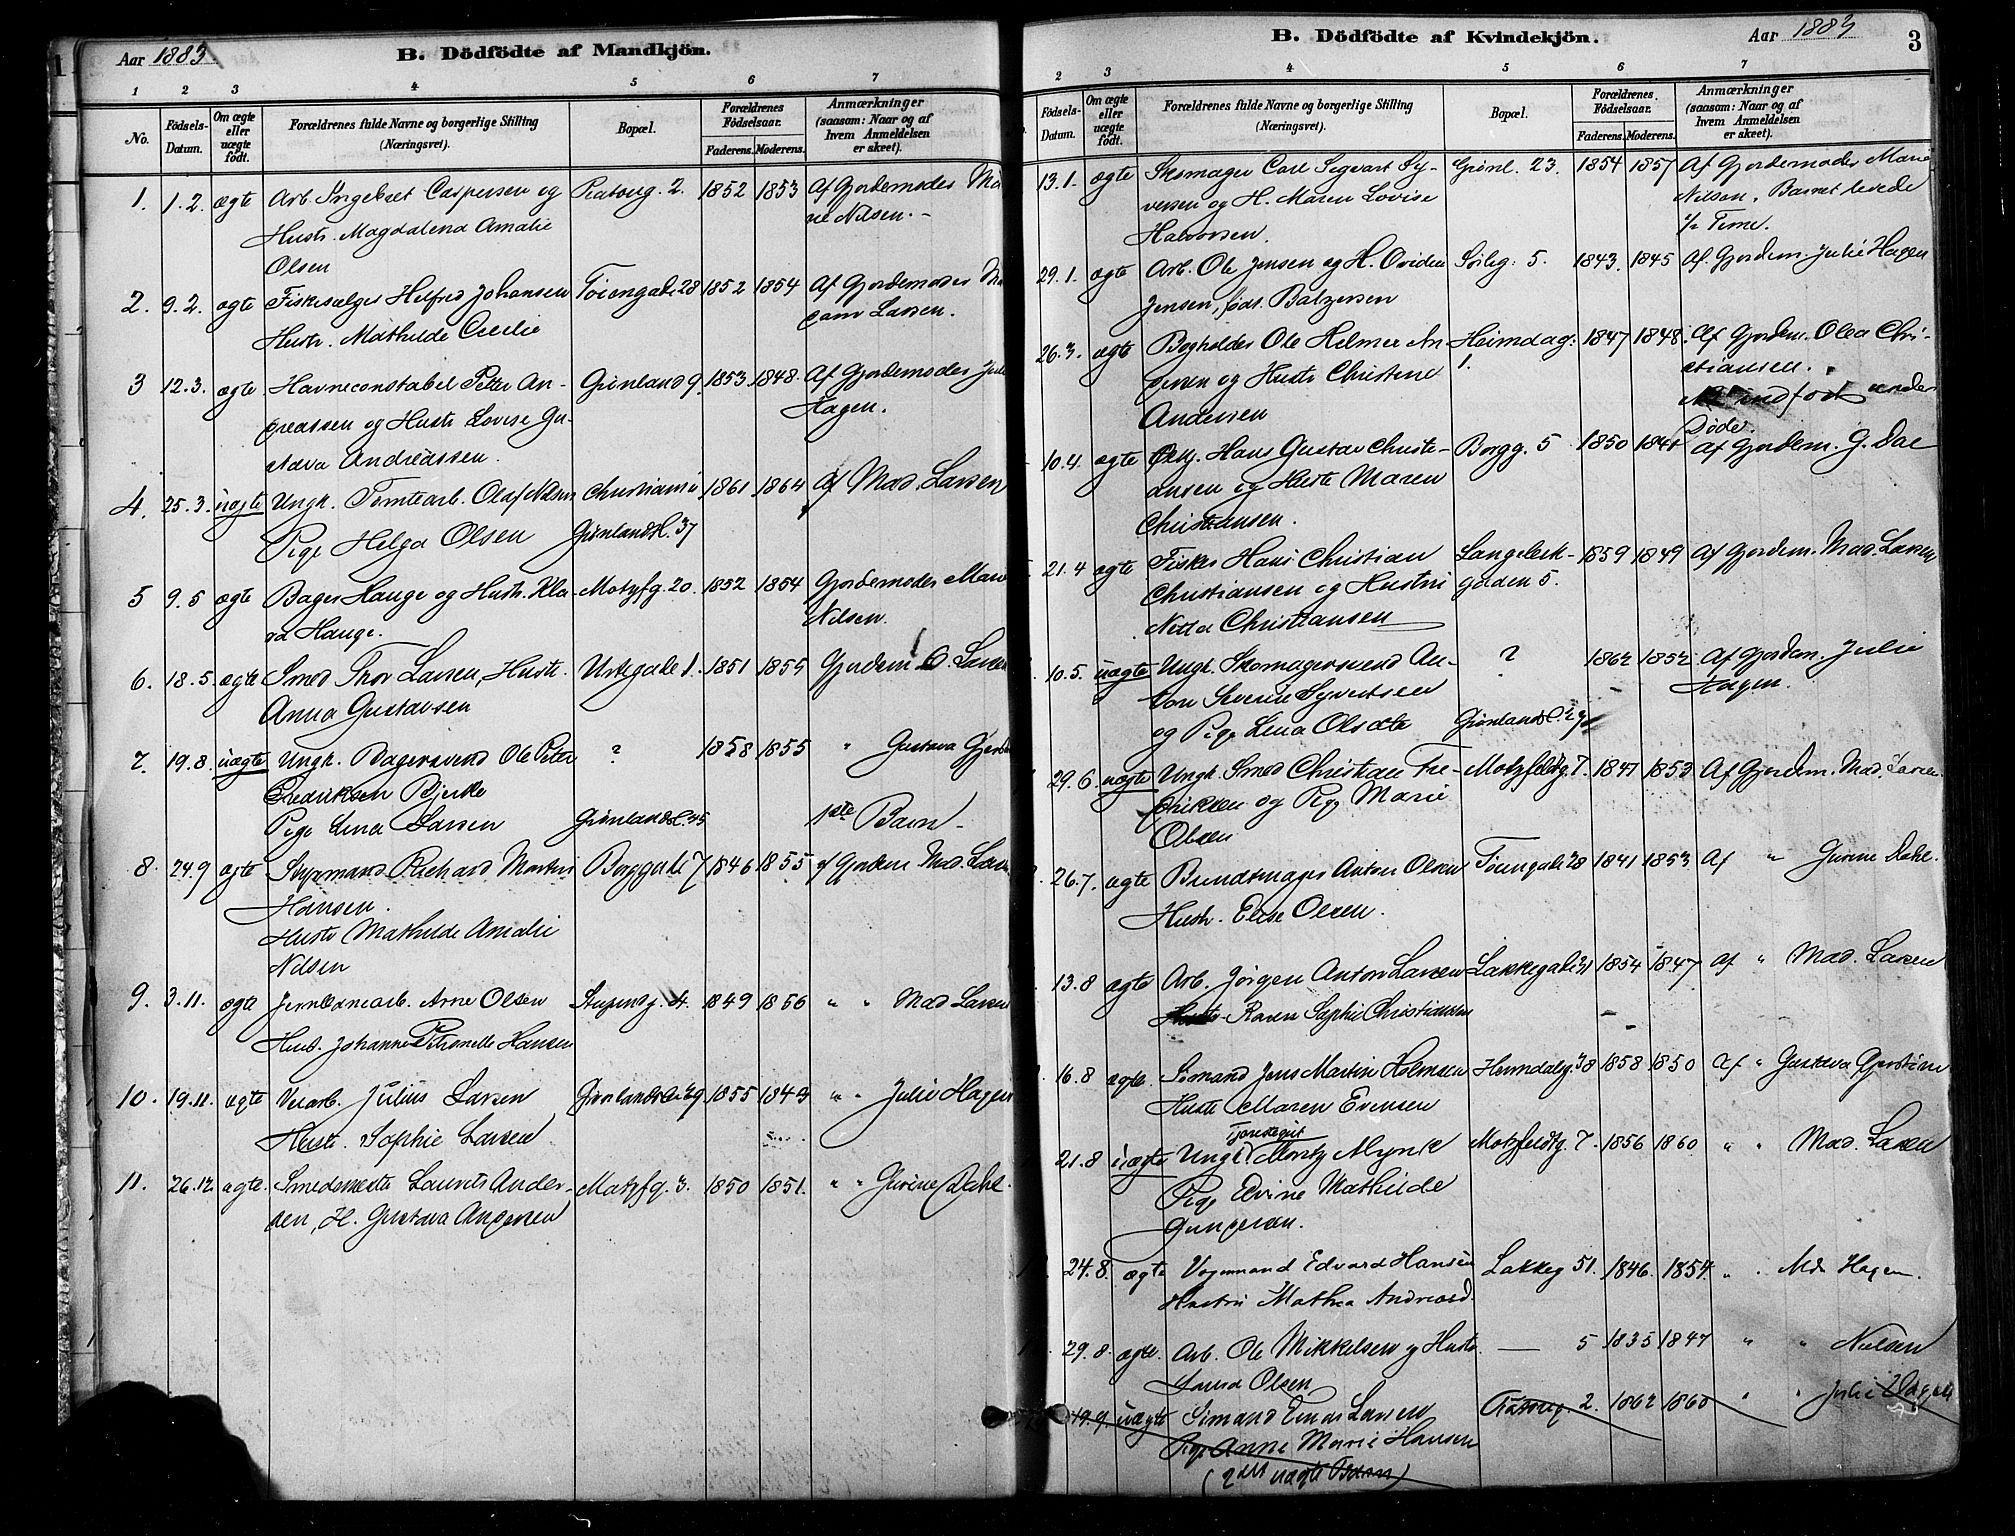 Aar 1883.
B. Dödfödte af Mandkjön.
1 2 3 4 5 6 7
No.
Födsels-Datum.
Om ægte eller uægte födt.
Forældrenes fulde Navne og borgerlige Stilling (Næringsvei).
Bopæl.
Forældrenes Födselsaar.
Faderens. Moderens.
Anmærkninger (saasom: Naar og af hvem Anmeldelsen er skeet).
1. 1.2. ægte Arb. Ingebret Caspersen og 2. 1852 1853 Af Gjordemoder
Hustr. Magdalena Amalie Nilsen.
Olsen
2. 9.2. ægte Fiskesælger Helfred Johansen Töiengade 28 1852 1854 Af Gjordemoder
Hustr. Mathilde Cecilie Larsen.
3 12.3. ægte Havneconstabel Petter An- Grønland 9. 1853 1848. Af Gjordemoder Julie
dreassen og Hustr Lovise Gu- Hagen.
stava Andreassen.
4. 25.3. uægte Ungk. Tomtearb. Olaf Nilsen Christiania 1861 1864 Af Mad. Larsen
Pige Helga Olsen Grønlandsl. 37
5 9.5 ægte Bager Hauge og Hustr. Kla- Motzfg. 20. 1852 1854 Gjordemoder
ra Hauge. Nilsen.
6. 18.5. ægte Smed Thor Larsen, Hustr. Urtegade 1. 1851 1859 Gjordem. Larsen
Anna Gustavsen
7. 19.8. uægte Ungk. Bagersvend Ole Peter ? 1858 1855 " Gustava
Fredriksen Bjerke
Pige Lina Larsen Grønlandsl. 35 1ste Barn
8. 24.9 ægte Styrmand Richard Martin Borggade 7 1846 1855 af Gjordem Mad. Larsen
Hansen.
Hustr Mathilde Amalie
Nilsen
9. 3.11. ægte Jernbanearb. Arne Olsen 4. 1849 1856 " " Mad Larsen
Hust. Johanne Petronelle Hansen
10. 19.11. ægte Veiarb. Julius Larsen 1855 1849 " " Julie Hagen
Hustr. Sophie Larsen
11. 26.12. ægte. Smedmester Laurits Ander- Motzfg. 3. 1850 1851. " " Gurine Dahl.
sen, H. Gustava Andersen
B. Dödfödte af Kvindekjön.
Aar 1883
3
2 3 4 5 6 7
Födsels-Datum.
Om ægte eller uægte födt.
Forældrenes fulde Navne og borgerlige Stilling (Næringsvei).
Bopæl.
Forældrenes Födselsaar.
Faderens. Moderens.
Anmærkninger (saasom: Naar og af hvem Anmeldelsen er skeet).
13.1. ægte Skomager Carl Sigvart Sy- Grönl. 23. 1854 1857 Af Gjordemoder Marie
versen og H. Maren Lovise Nilsen. Barnet levede
Halvorsen. ½ Time.
29.1. ægte Arb. Ole Jensen og H. Ovidia Sörlig. 5. 1843. 1845 Af Gjordem. Julie Hagen
Jensen, föds. Balzersen
26.3. ægte Bogholder Ole Helmer An- Heimdalg. 1847 1848. Af Gjordem. Olea Chri-
dersen og Hustr Christine 1. stiansen.
Andersen indfört under
Döde.
10.4. ægte Hans Gustav Christi- Borgg. 5 1850 1841 Af Gjordem. G. Dal
ansen og Hustr Maren
Christiansen.
21.4 ægte Fisker Hans Christian Langeleik- 1859 1849 Af Gjordem. Mad. Larsen
Christiansen og Hustru gaden 5.
Netta Christiansen
10.5. uægte Ungk. Skomagersvend An- ? 1862 1852 Af Gjordem. Julie
ton Severin Syvertsen Hagen.
og Pige Lina Olsdtr Grønlandsl.
29.6. uægte Ungk. Smed Christian Fre- Motzfeldtg. 7. 1847 1853 Af Gjordem. Mad. Larsen
driksen og Pige Marie
Olsen
26.7. ægte Buntmager Anton Olsen Töiengade 28 1841 1853 Af " Gurine Dahl.
Hustr. Elise Olsen.
13.8 ægte Arb. Jörgen Anton Larsen Lakkegade 31 1854 1847 af " Mad. Larsen
Hustr. Karen Sophie Christiansen
16.8 ægte. Sömand Jens Martin Holmsen Heimdalsg. 38 1858 1850 Af " Gustava
Hustr Maren Evensen
21.8 uægte Ungk. Tjenestegut Moritz Mynk Motzfeldtg. 7. 1856 1860 " " Mad. Larsen
Pige Edvine Mathilde
Gundersen.
24.8. ægte Vognmand Edvard Hansen Lakkeg 51. 1846. 1854. " . Md. Hagen.
Hustru Mathea Andreasd.
29.8. ægte. Arb. Ole Mikkelsen og Hustr. — 5 1835 1847 " " Nielsen
Laura Olsen
19.9. uægte Sömand Einar Larsen 2. 1862 1860 " " Julie Hagen
Pige Anne Marie Hansen
(2det uægte Barn)